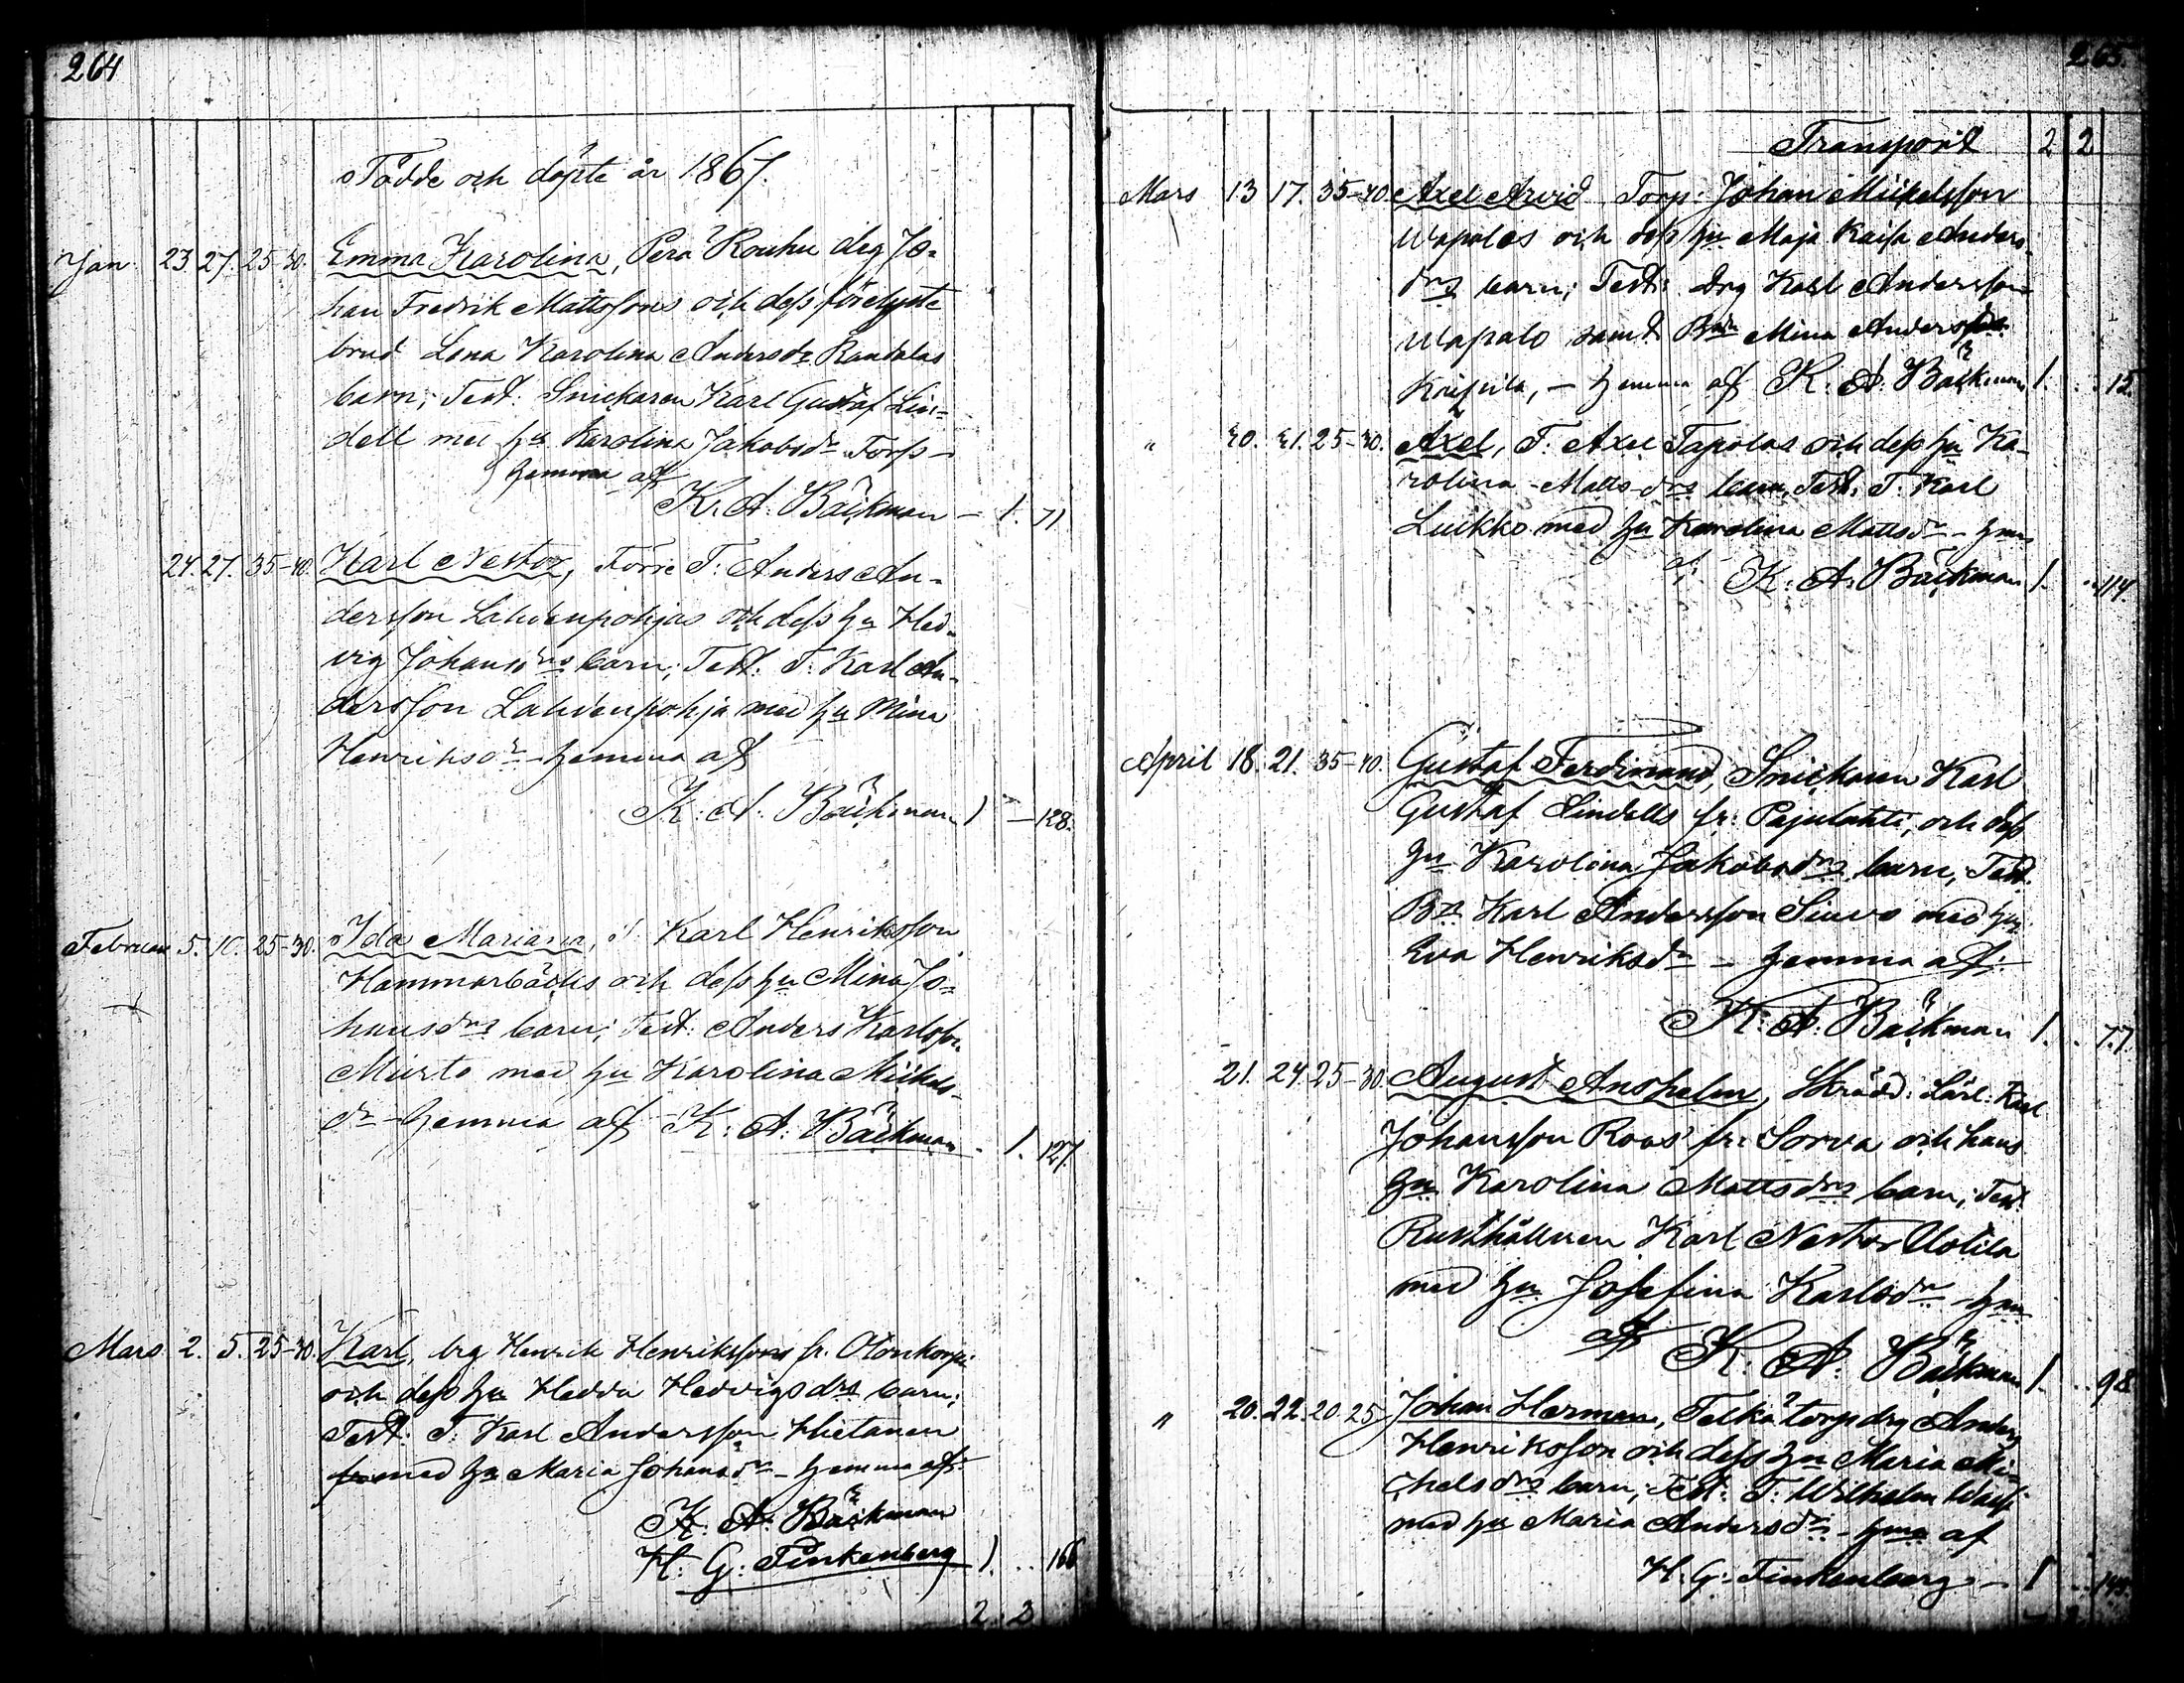 264
Födde och döpte år 1867.
Jan. 23 27. 25-30. Emma Karolina, Perä Rouhu drg Jo-
han Fredrik Mattssons och dess förelyste
brud Lena Karolina Andersdr Randalas
barn; Test: Snickaren Karl Gustaf Lin-
dell med hu Karolina Jakobsdr Torp-
hemma af
K. A. Bäckman - 1. 71
24. 27. 35-40. Karl Nestor, Förre T: Anders An-
dersson Lahdenpohjas och dess hu Hed-
vig Johansdrs barn; Test: T: Karl An-
dersson Lahdenpohja med hu Mina
Henriksdr - hemma af
K: A: Bäckman 1 - 128.
Februari 5. 10. 25-30. Ida Mariana, Karl Henriksson
Hammarbäcks och dess hu Mina Jo-
hansdrs barn; Test: Anders Karlsson
Murto med hu Karolina Mickels-
dr - hemma af K: A: Bäckman - 1. 127.
Mars 2. 5. 25-30. Karl, drg Henrik Henrikssons fr. Otonkorpi
och dess hu Hedda Hedvigsdrs barn;
Test: T: Karl Andersson Hietanen
med hu Maria Johansdr - hemma af:
K: A: Bäckman
H: G: Finkenberg 1. .. 166
2. 2
265
Transport 2 2
Mars 13 17. 35-40. Axel Arvid Torp: Johan Mickelsson
Uapalos och dess hu Maja Kaisa Anders-
drs barn; Test: Drg Karl Andersson
Uapalo samt Mina Andersdr
- hemma af K: A: Bäckman 1. .. 15.
" 20. 21. 25-30. Axel, T. Axel Tapolas och dess hu Ka-
rolina Mattsdrs barn, Test: T: Karl
Luikko med hu Karolina Mattsdr - hma
af: K: A: Bäckman 1. .. 114.
April 18. 21. 35-40. Gustaf Ferdinand, Snickaren Karl
Gustaf Lindells fr: Pajulahti, och dess
hu Karolina Jakobsdrs barn; Test.
Karl Andersson Siuvo med hu
Eva Henriksdr - hemma af:
K: A: Bäckman 1. .. 77.
21. 24. 25-30. August Anshelm, Skrädd: Lärl: Karl
Johansson Roos' fr: Sorva och hans
hu Karolina Mattsdrs barn; Test.
Rusthållaren Karl Nestor Uotila
med hu Josefina Karlsdr - hma
af K: A: Bäckman 1. .. 98
" 20. 22. 20. 25 Johan Herman, Telkä torp drg Anders
Henriksson och dess hu Maria Mi-
chelsdrs barn; Test: T: Wilhelm
med hu Maria Andersdr - hma af
H. G: Finkenberg - 1 ..